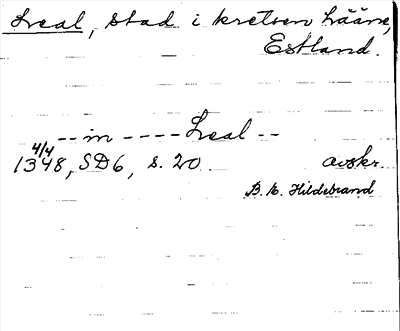 Leal, stad i kretsen Lääne,
Estland.
-- in ---- Leal --
4/4
1348, SD6, s. 20. avskr.
B. E. Hildebrand